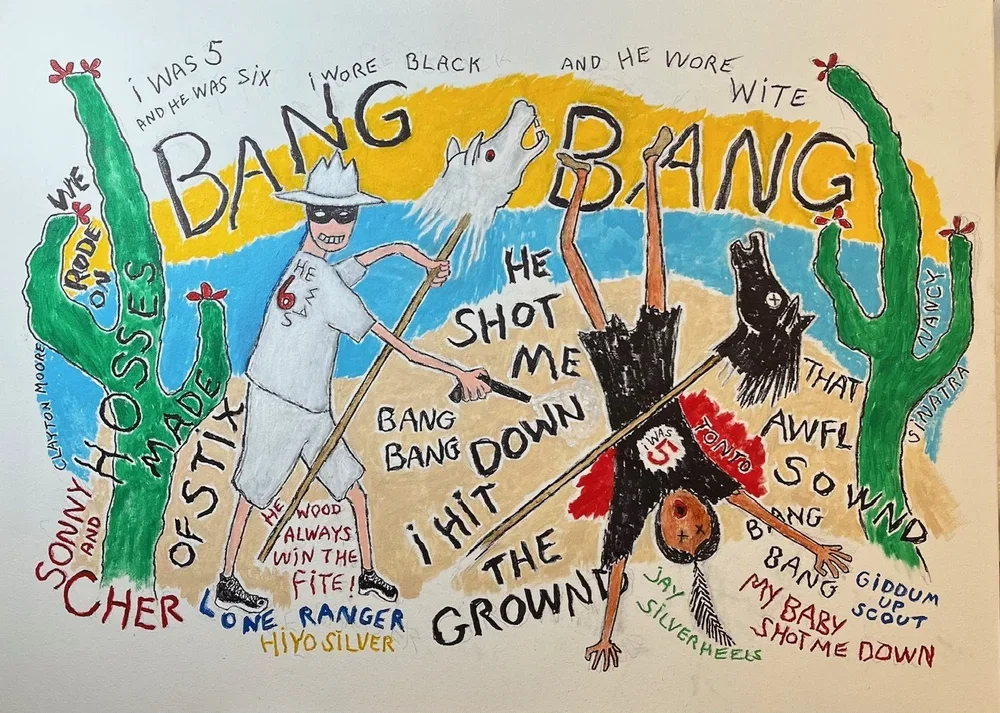 i WAS 5
AND HE WAS SIX
i WORE BLACK
AND HE WORE
WITE
BANG BANG
WE
RODE
ON
HOSSES
MADE
OF STIX
CLAYTON MOORE
SONNY
AND
CHER
HE
WAS
6
HE WOOD
ALWAYS
WiN THE
FiTE!
LONE RANGER
HiYO SiLVER
HE
SHOT
ME
DOWN
BANG
BANG
i HiT
THE
GROWND
i WAS
5
TONTO
JAY
SiLVERHEELS
THAT
AWFL
SOWND
BANG
BANG
MY BABY
SHOT ME DOWN
GIDDUM
UP
SCOUT
NANCY
SiNATRA